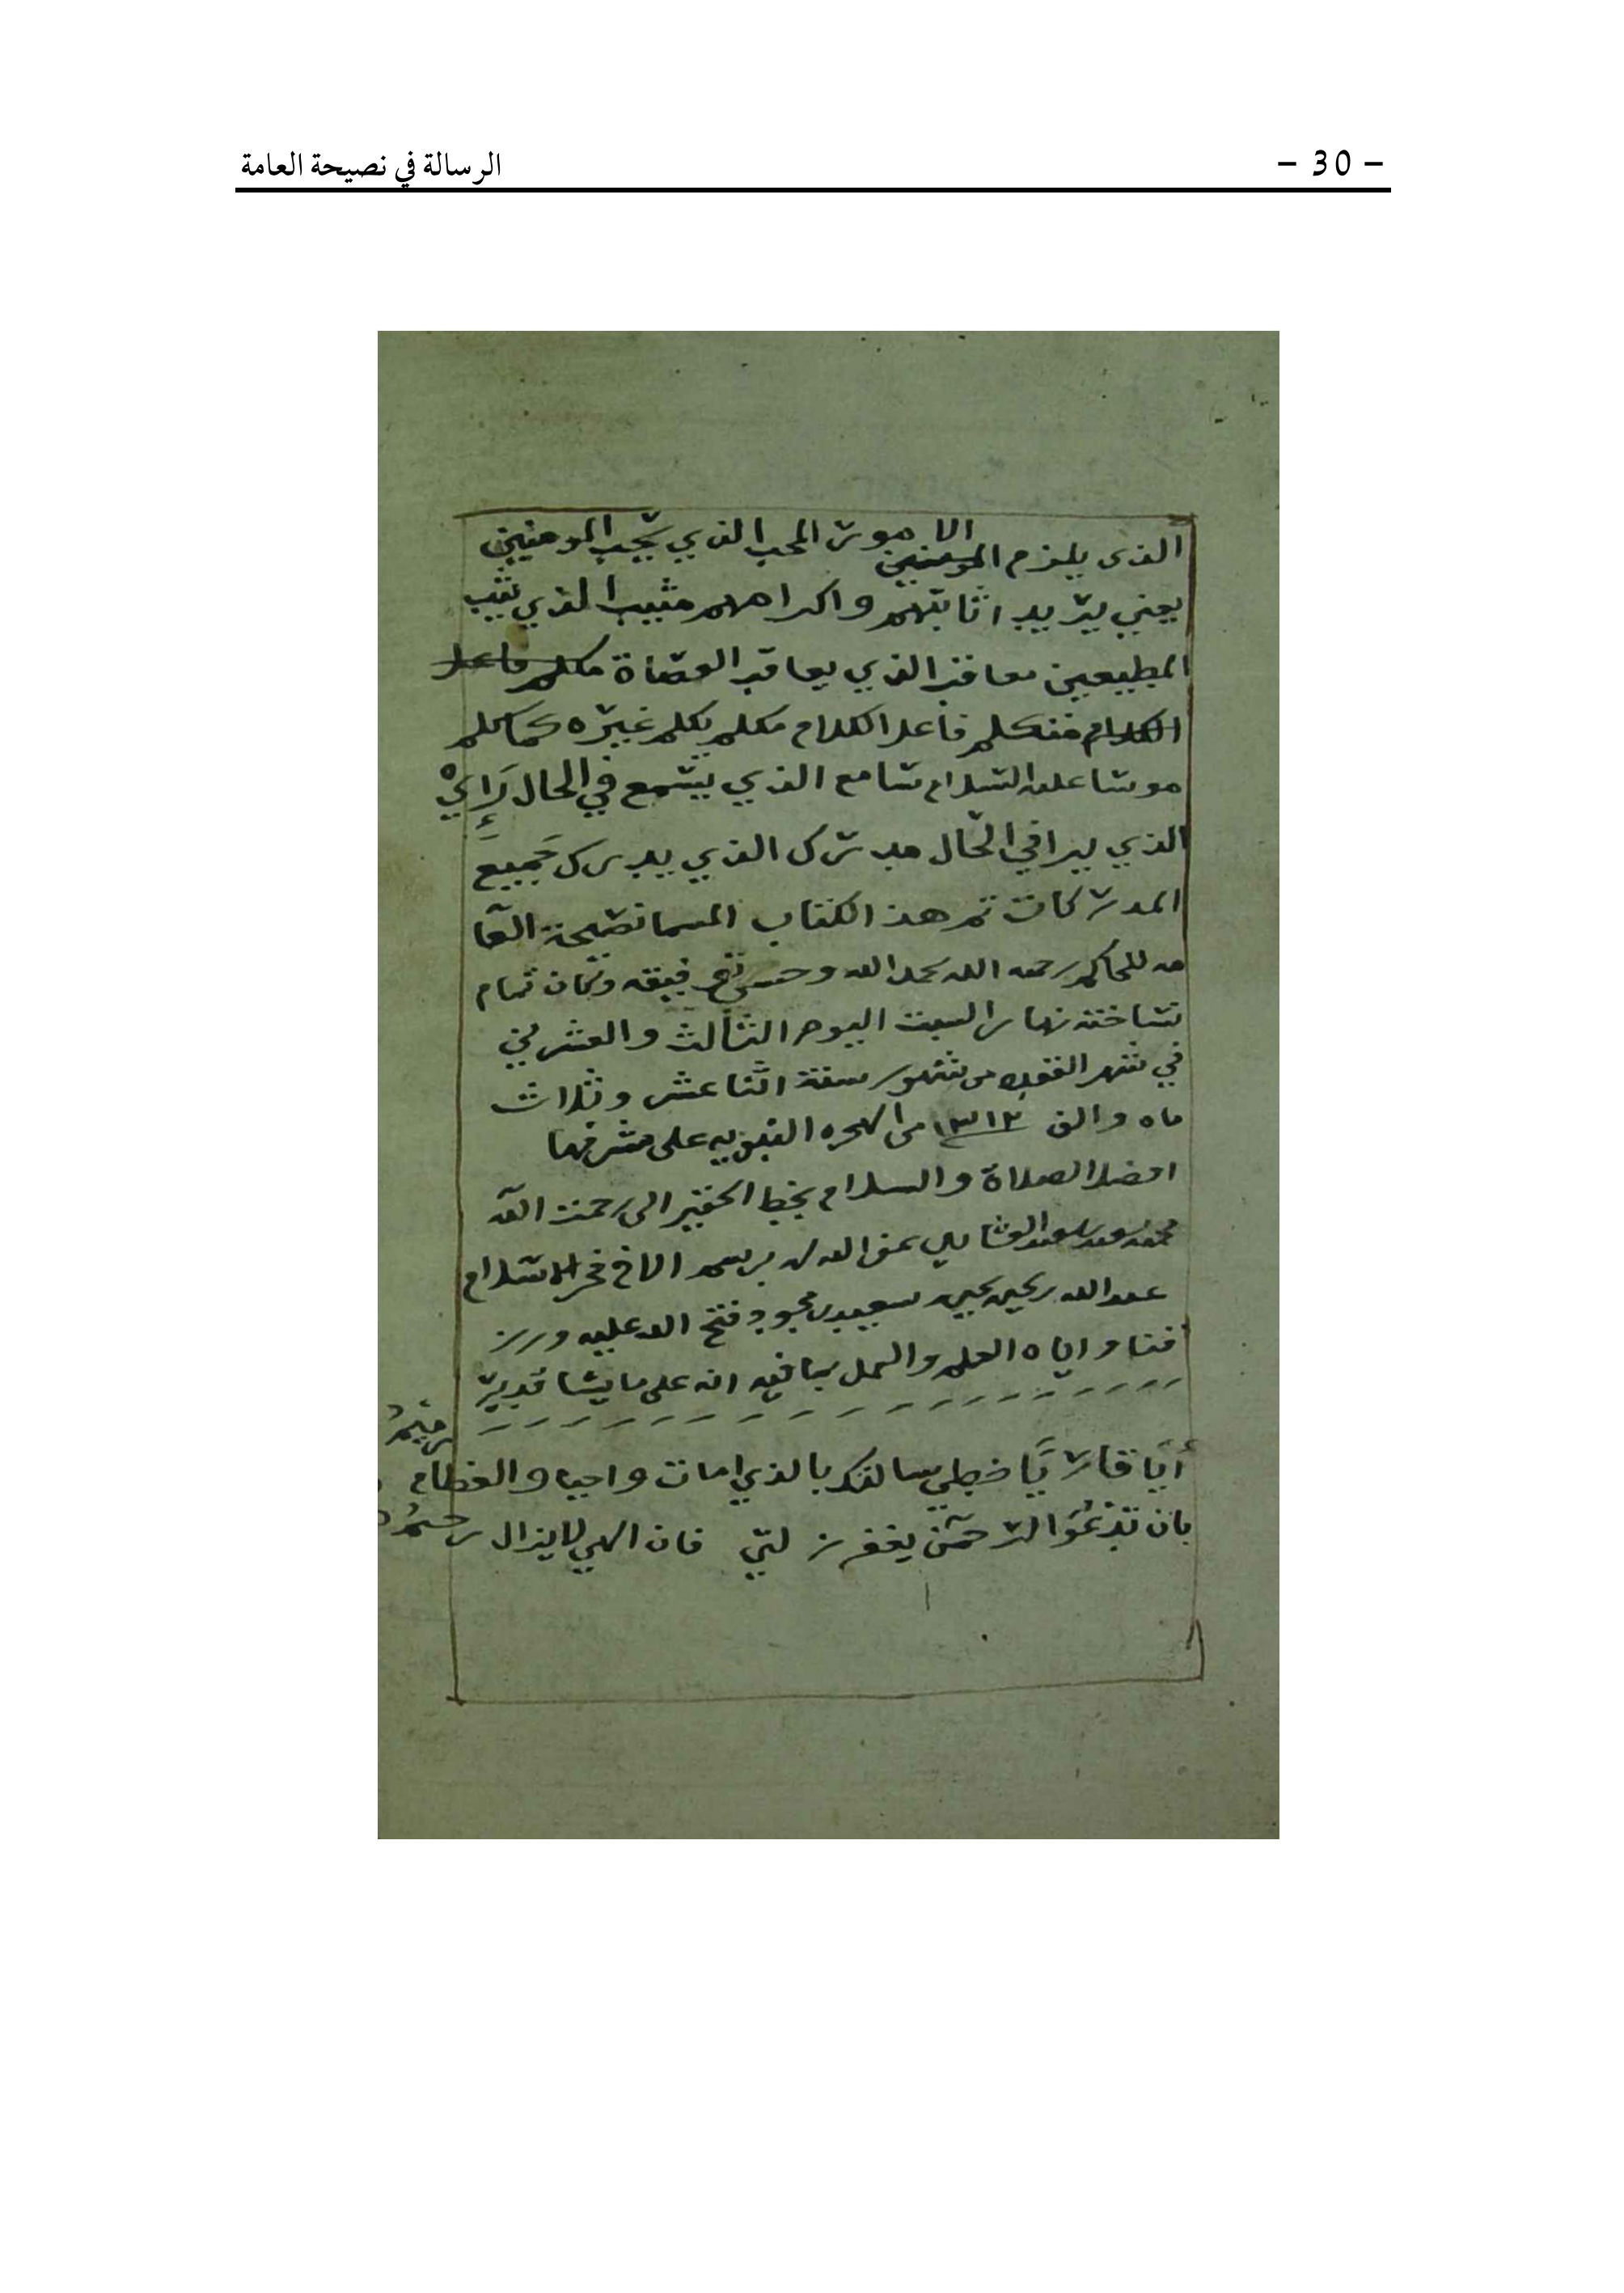 الرسالة في نصيحة العامة
– 30 –
الذى يلزم المومنين الامور المحب الذي يحب المومنين
يعني يريد اثابتهم واكرامهم مثيب الذي يثيب
المطيعين معاقب الذي يعاقب العصاة مكلم فاعل
الكلام متكلم فاعل الكلام مكلم يكلم غيره كما كلم
موسا عليه السلام سامع الذي يسمع في الحال رَائي
الذي يرا في الحال مدرك الذي يدرك جَميع
المدركات تم هذ الكتاب المسما نصيحة العا
مه للحاكم رحمه الله بحمد الله وحسن توفيقه وكان تمام
نساخته نهار السبت اليوم الثالث والعشرين
في شهر القعده من شهور سنة اثنا عشر وثلاث
ماه والف ١٣١٢ من الهجره النبويه على مشرفها
افضل الصلاة والسلام بخط الحقير الى رحمت الله
محمد سعيد عفى الله له برسم الاخ فخر الاسلام
عبد الله يحيى سعيد فتح الله عليه ورز
قنا واياه العلم والعمل بما فيه انه على ما يشا قدير
أيَا قارِيًا خطي سالتك بالذي امات واحيا والعظام رميمُ
بان تدعُوَا الرحمن يغفر زلتي فان الهي لا يزال رحيمُ